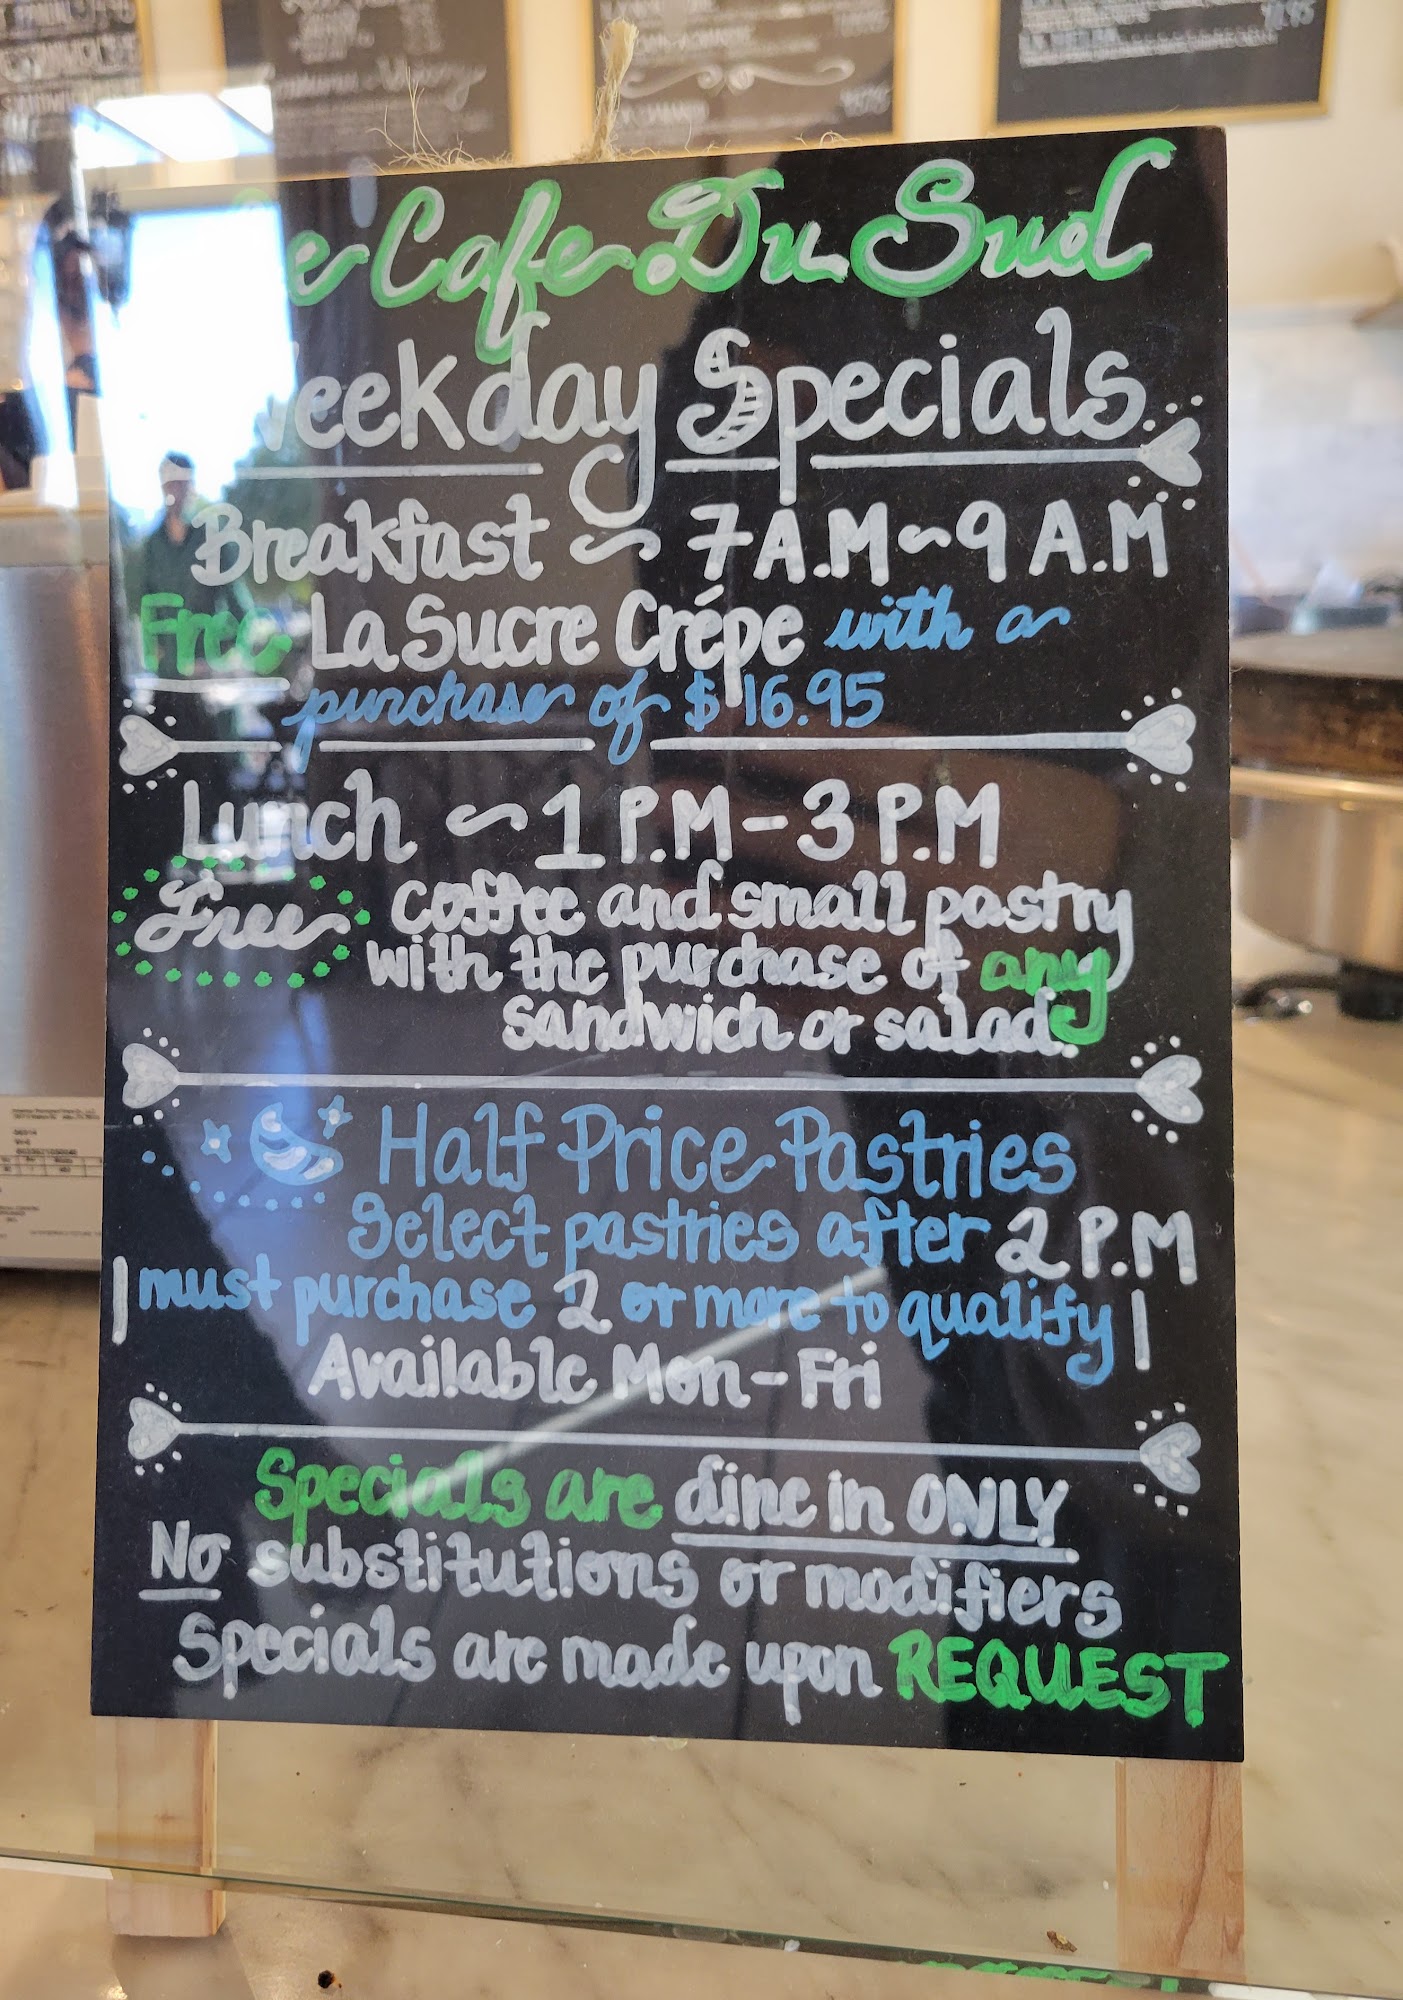 e Cafe Du Sud
Weekday Specials
Breakfast ~ 7 A.M ~ 9 A.M
Free La Sucre Crépe with a
purchase of $ 16.95
Lunch ~ 1 P.M - 3 P.M
Free coffee and small pastry
with the purchase of any
sandwich or salad.
Half Price Pastries
Select pastries after 2 P.M
| must purchase 2 or more to qualify |
Available Mon-Fri
Specials are dine in ONLY
No substitutions or modifiers
Specials are made upon REQUEST